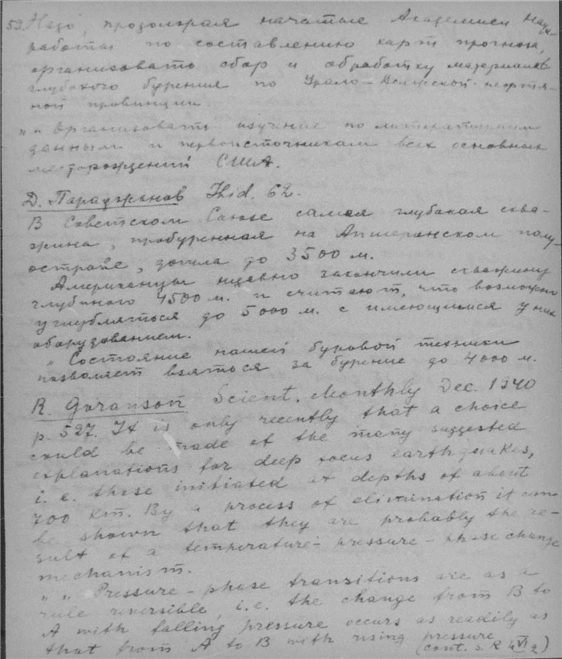 59 Надо, продолжая начатые Академией Наук
работы по составлению карт прогноза,
организовать сбор и обработку материалов
глубокого бурения по Урало-Волжской нефтя-
ной провинции.
„ „ Организовать изучение по литературным
данным и первоисточникам всех основных
месторождений США.
Д. Ibid. 62.
В Советском Союзе самая глубокая сква-
жина, пробуренная на Апшеронском полу-
острове, дошла до 3500 м.
Американцы недавно закончили скважину
глубиною 4500 м. и считают, что возможно
углубляться до 5000 м. с имеющимся у них
оборудованием.
„ Состояние нашей буровой техники
позволяет взяться за бурение до 4000 м.
R. Goranson Scient. Monthly Dec. 1940
p. 527. It is only recently that a choice
could be made of the many suggested
explanations for deep focus earthquakes,
i. e. those initiated at depths of about
700 km. By a process of elimination it can
be shown that they are probably the re-
sult of a temperature-pressure-phase change
mechanism.
„ „ Pressure-phase transitions are as a
rule reversible, i.e. the change from B to
A with falling pressure occurs as readily as
that from A to B with rising pressure
(cont. s. R